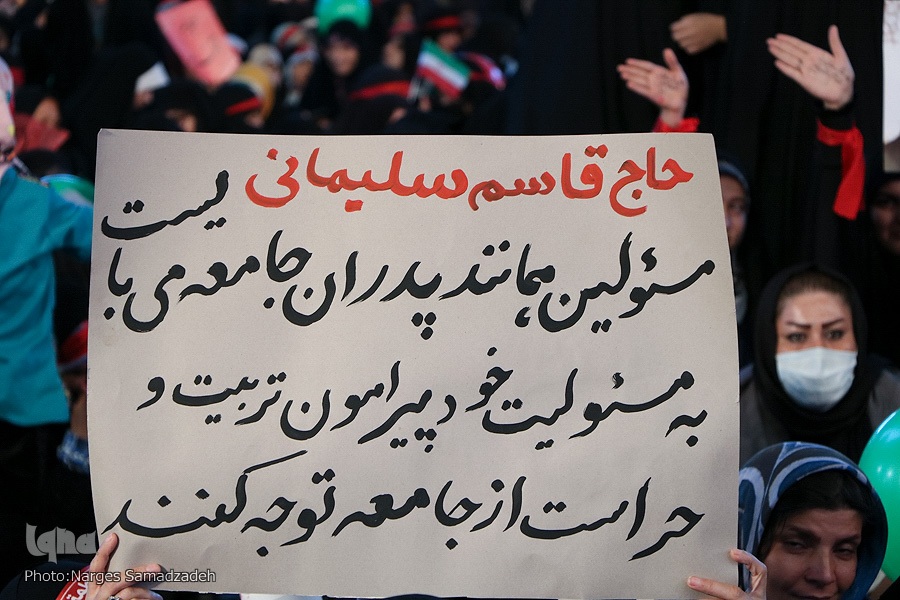 حاج قاسم سلیمانی
مسئولین همانند پدران جامعه می بایست
به مسئولیت خود پیرامون تربیت و
حراست از جامعه توجه کنند
iqna
Photo:Narges Samadzadeh